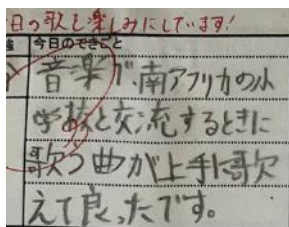 日の歌も楽しみにしています!
今日のできごと
音楽が、南アフリカの小
学校と交流するときに
歌う曲が上手に歌
えて良ったです。